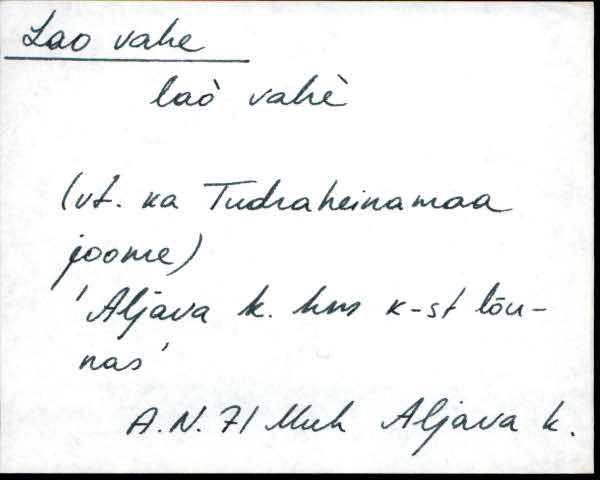 Lao vahe
laò vahè
(vt. ka Tudraheinamaa
joome)
'Aljava k. hm k-st lõu-
nas'
A.N. 71 Muh Aljava k.